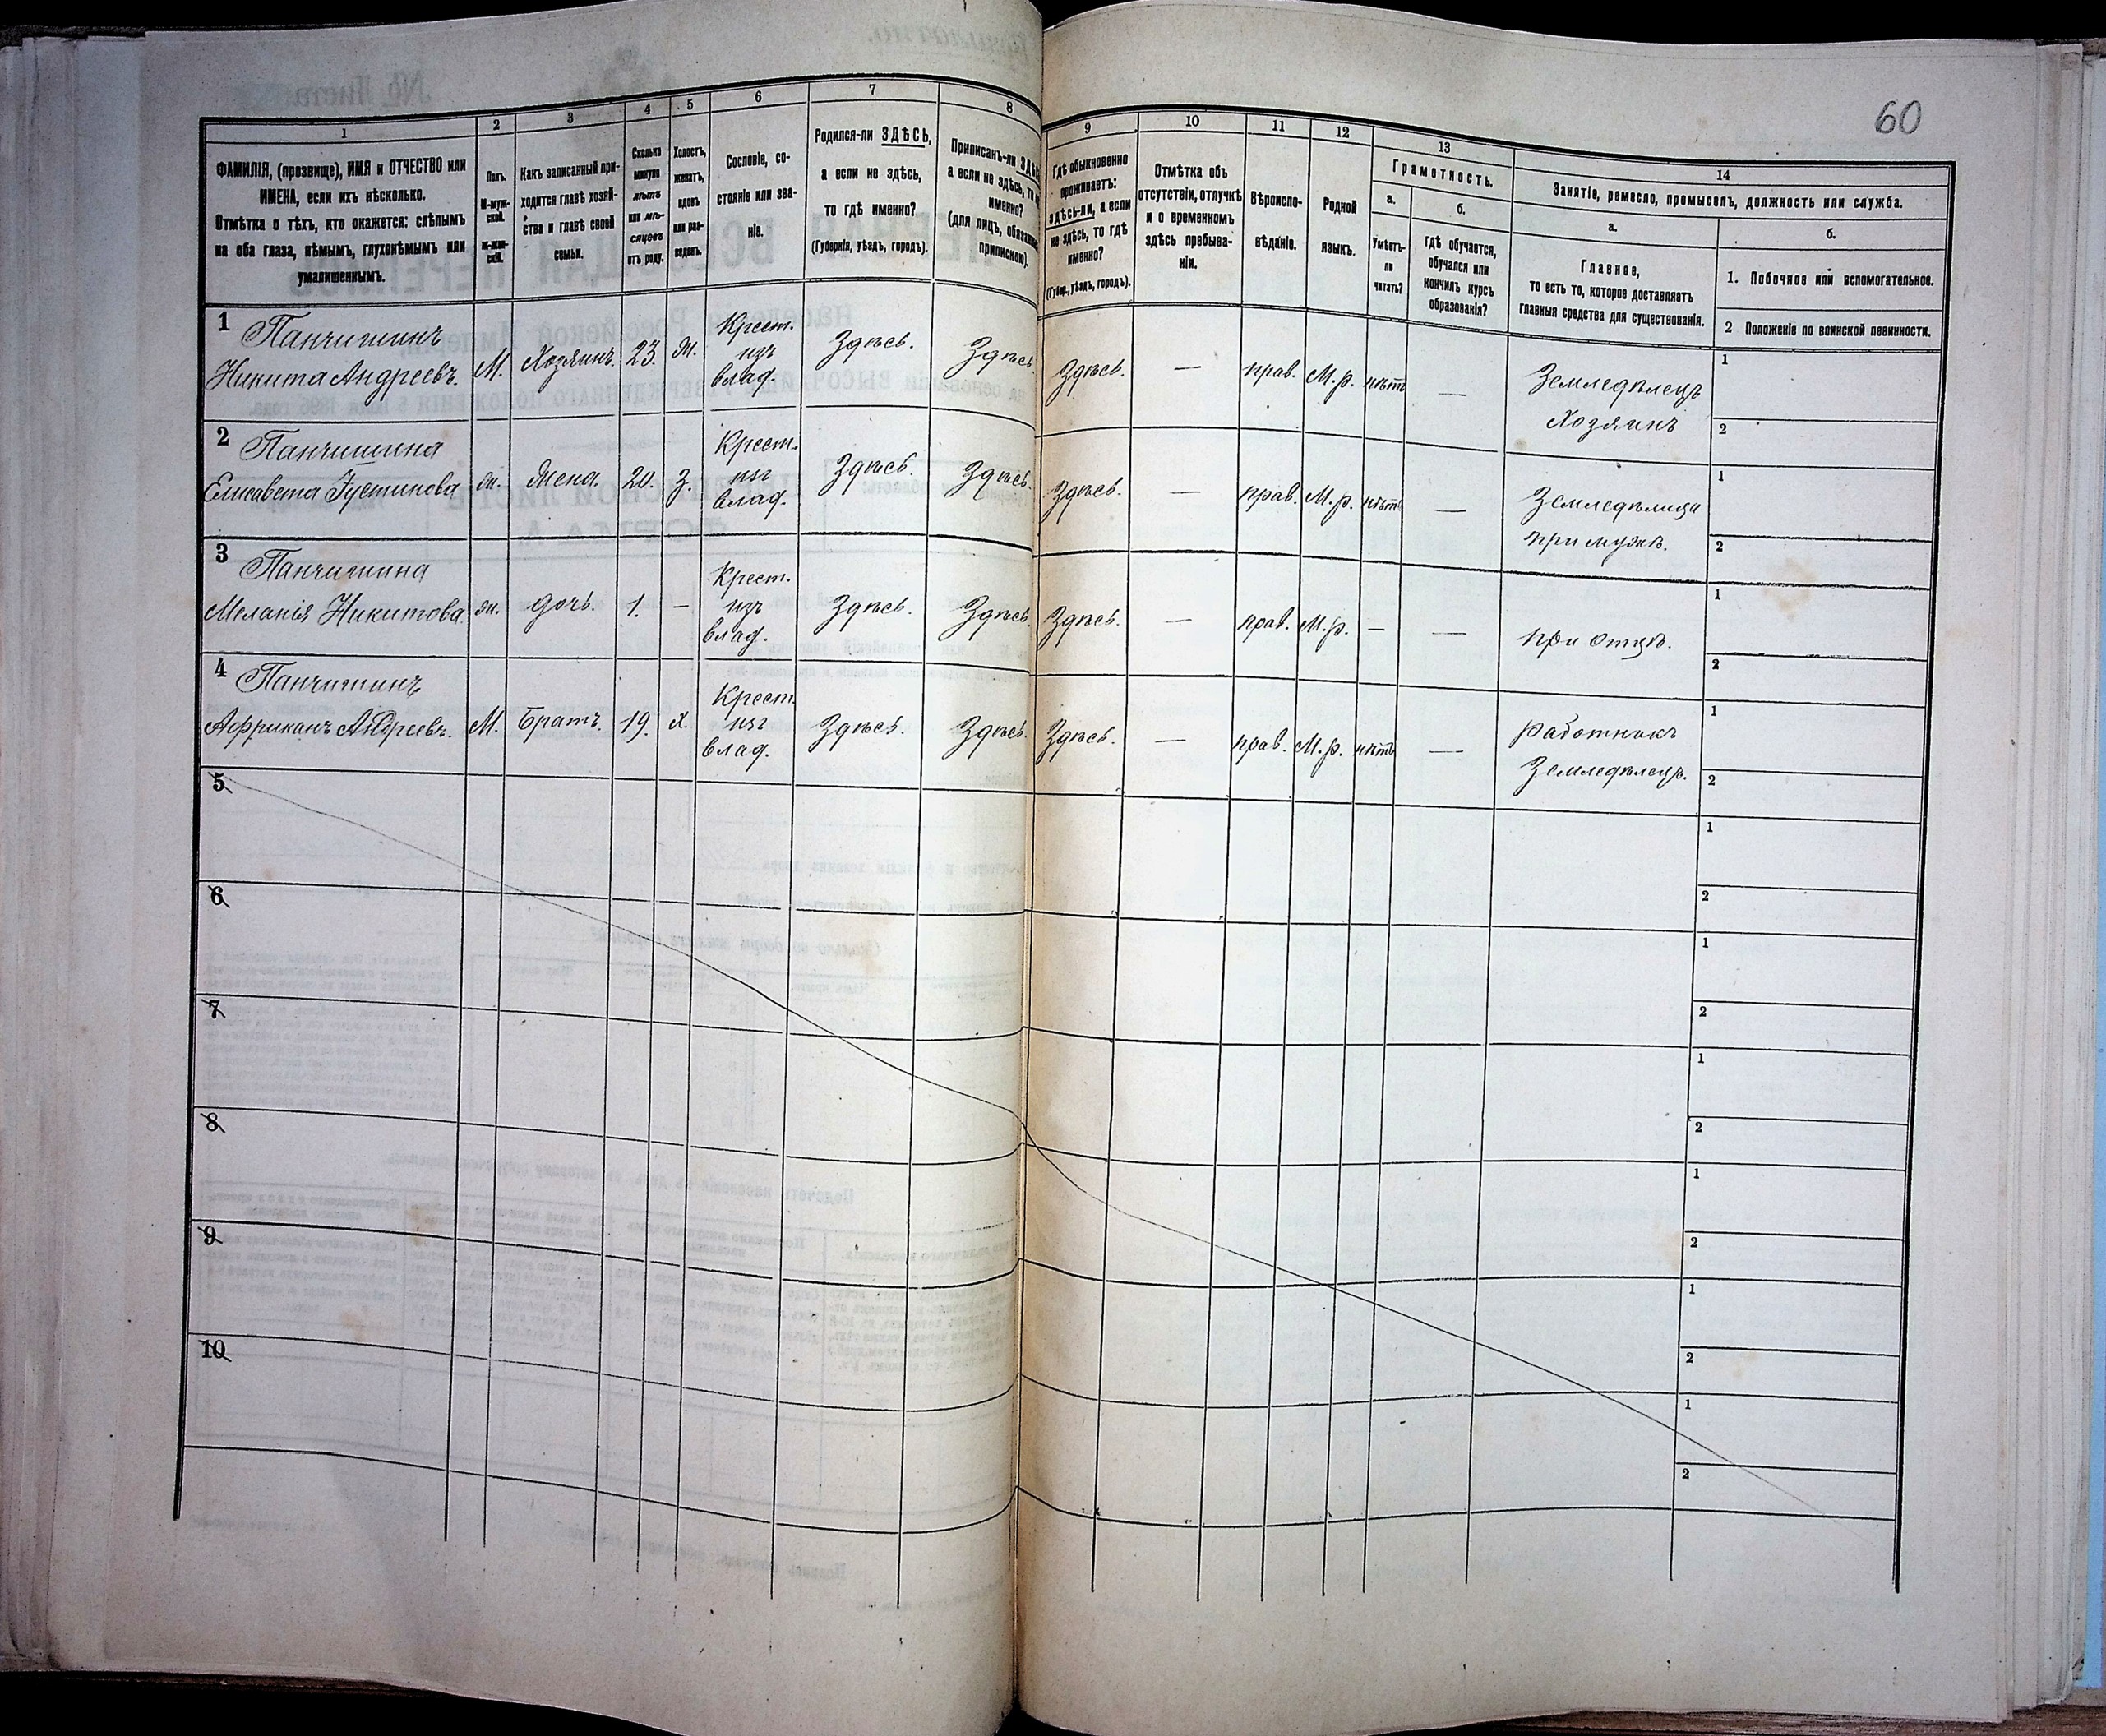 60
1
2
3
4
5
6
7
8
ФАМИЛІЯ, (прозвище), ИМЯ и ОТЧЕСТВО или
ИМЕНА, если ихъ нѣсколько.
Отмѣтка о тѣхъ, кто окажется: слѣпымъ
на оба глаза, нѣмымъ, глухонѣмымъ или
умалишеннымъ.
Полъ.
М-муж-
ской.
Ж-жен-
скій.
Какъ записанный при-
ходится главѣ хозяй-
ства и главѣ своей
семьи.
Сколько
минуло
лѣтъ
или мѣ-
сяцевъ
отъ роду.
Холостъ,
женатъ,
вдовъ
или раз-
веденъ.
Сословіе, со-
стояніе или зва-
ніе.
Родился-ли ЗДѢСЬ,
а если не здѣсь,
то гдѣ именно?
(Губернія, уѣздъ, городъ).
Приписанъ-ли
а если не здѣсь, то
именно?
(для лицъ,
припискою).
9
10
11
12
13
14
Гдѣ обыкновенно
проживаетъ:
здѣсь-ли, а если
не здѣсь, то гдѣ
именно?
(Губер., уѣздъ, городъ).
Отмѣтка объ
отсутствіи, отлучкѣ
и о временномъ
здѣсь пребыва-
ніи.
Вѣроиспо-
вѣданіе.
Родной
языкъ.
Грамотность.
а.
Умѣетъ-
ли
читать?
б.
Гдѣ обучается,
обучался или
кончилъ курсъ
образованія?
Занятіе, ремесло, промыселъ, должность или служба.
а.
Главное,
то есть то, которое доставляетъ
главныя средства для существованія.
б.
1. Побочное или вспомогательное.
2 Положеніе по воинской повинности.
1 Панчишинъ
Никита Андреевъ. М. Хозяинъ. 23. ж. Крест. изъ влад. Здѣсь. Здѣсь Здѣсь. — прав. М.р. нѣтъ — Земледѣлецъ
Хозяинъ
1
2
2 Панчишина
Елисавета Густинова ж. Жена. 20. З. Крест. изъ влад. Здѣсь. Здѣсь. Здѣсь. — прав. М.р. нѣтъ — Земледѣлица
при мужѣ.
1
2
3 Панчишина
Меланія Никитова. ж. дочь. 1. — Крест. изъ влад. Здѣсь. Здѣсь. Здѣсь. — прав. М.р. — — при отцѣ.
1
2
4 Панчишинъ
Африканъ Андреевъ. М. Братъ. 19. х. Крест. изъ влад. Здѣсь. Здѣсь. Здѣсь. — прав. М.р. нѣтъ — работникъ
Земледѣлецъ.
1
2
5
1
2
6
1
2
7
1
2
8
1
2
9
1
2
10
1
2